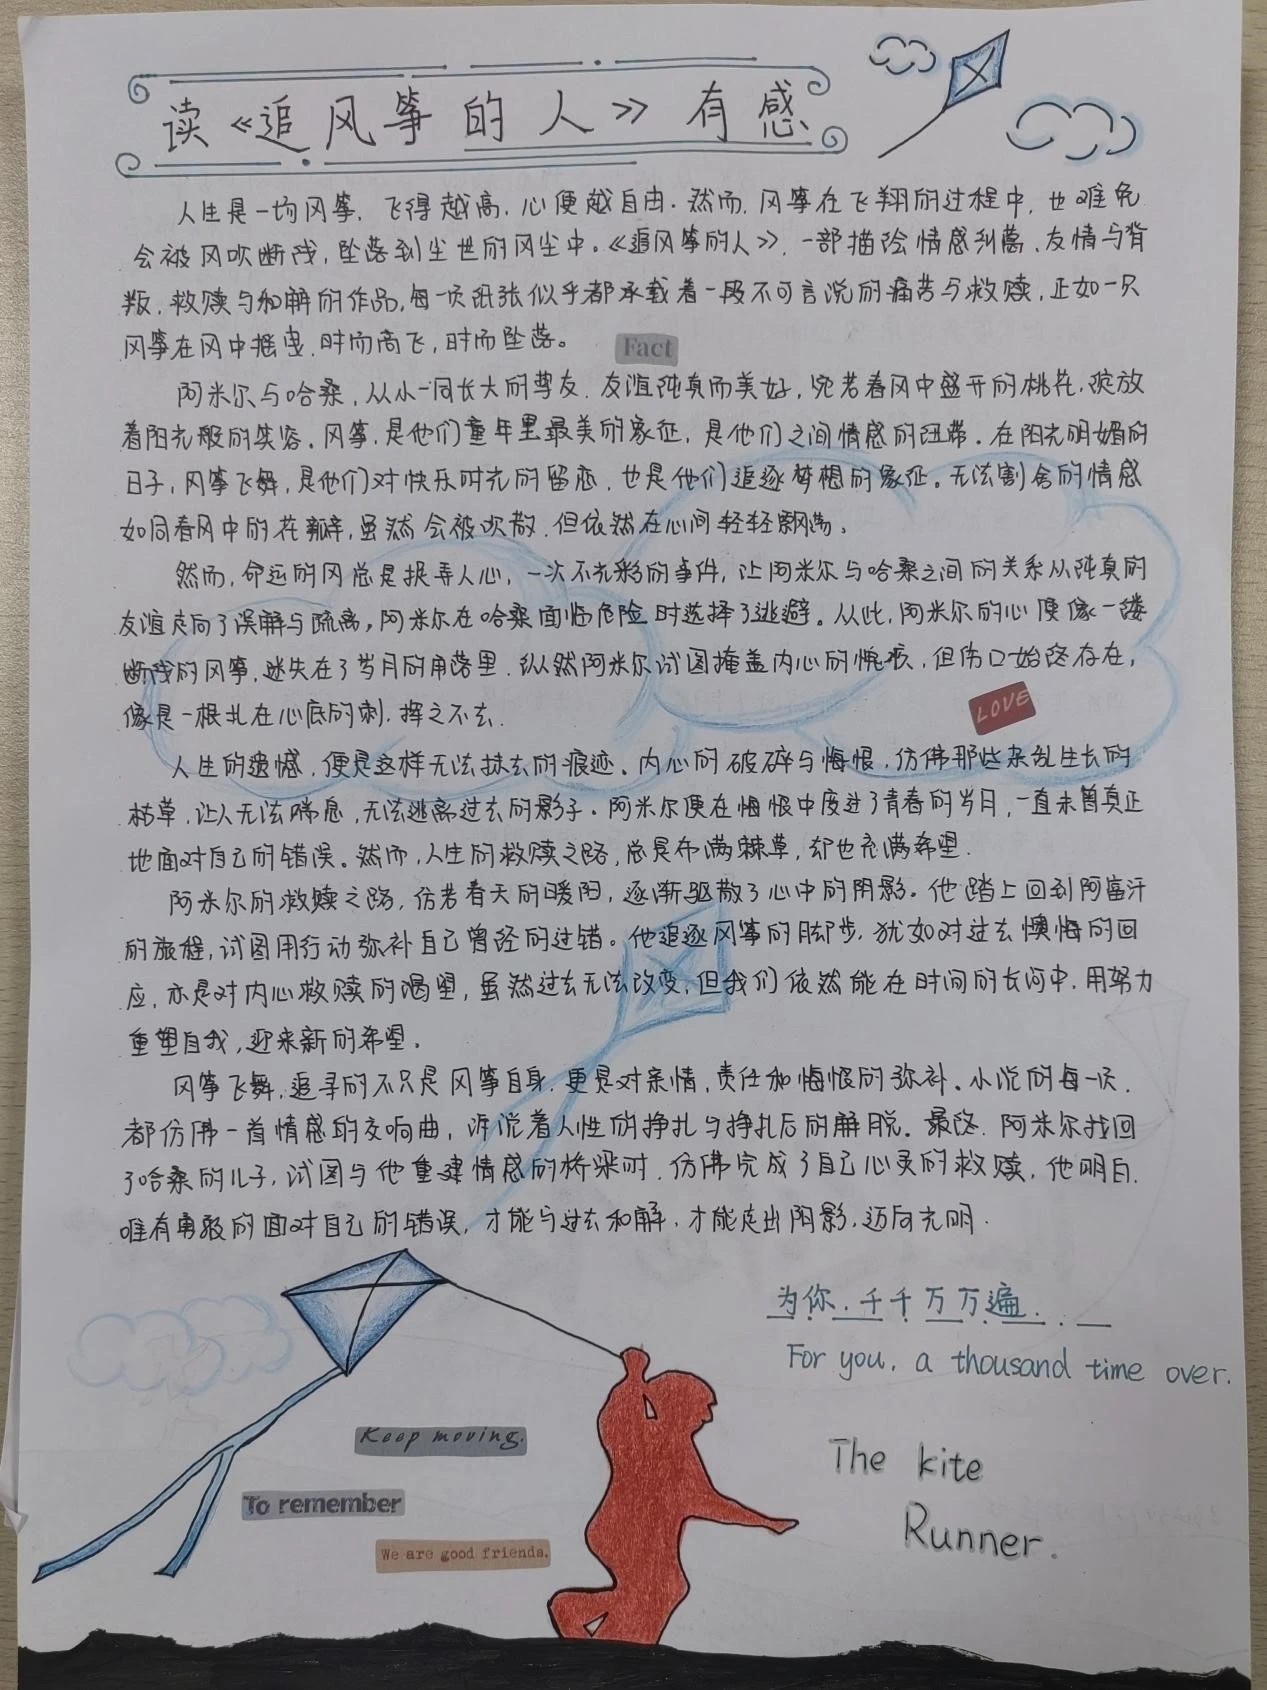 读《追风筝的人》有感
人生是一场风筝，飞得越高，心便越自由．然而，风筝在飞翔的过程中，也难免
会被风吹断线，坠落到尘世的风尘中。《追风筝的人》，一部描绘情感纠葛、友情与背
叛、救赎与和解的作品，每一页纸张似乎都承载着一段不可言说的痛苦与救赎，正如一只
风筝在风中摇曳，时而高飞，时而坠落。
Fact
阿米尔与哈桑，从小一同长大的挚友，友谊纯真而美好，宛若春风中盛开的桃花，绽放
着阳光般的笑容。风筝，是他们童年里最美的象征，是他们之间情感的纽带。在阳光明媚的
日子，风筝飞舞，是他们对快乐时光的留恋，也是他们追逐梦想的象征。无法割舍的情感
如同春风中的花瓣，虽然会被吹散，但依然在心间轻轻飘荡。
然而，命运的风总是捉弄人心，一次不光彩的事件，让阿米尔与哈桑之间的关系从纯真的
友谊走向了误解与疏离，阿米尔在哈桑面临危险时选择了逃避。从此，阿米尔的心便像一缕
断线的风筝，迷失在了岁月的角落里．纵然阿米尔试图掩盖内心的愧疚，但伤口始终存在，
像是一根扎在心底的刺，挥之不去．
LOVE
人生的遗憾，便是这样无法抹去的痕迹。内心的破碎与悔恨，仿佛那些杂乱生长的
枯草，让人无法喘息，无法逃离过去的影子。阿米尔便在悔恨中度过了青春的岁月，一直未曾真正
地面对自己的错误。然而，人生的救赎之路，总是布满棘草，却也充满希望．
阿米尔的救赎之路，仿若春天的暖阳，逐渐驱散了心中的阴影。他踏上回到阿富汗
的旅程，试图用行动弥补自己曾经的过错。他追逐风筝的脚步，犹如对过去懊悔的回
应，亦是对内心救赎的渴望，虽然过去无法改变，但我们依然能在时间的长河中，用努力
重塑自我，迎来新的希望。
风筝飞舞，追寻的不只是风筝自身，更是对亲情，责任和悔恨的弥补。小说的每一页，
都仿佛一首情感的交响曲，诉说着人性的挣扎与挣扎后的解脱。最终，阿米尔找回
了哈桑的儿子，试图与他重建情感的桥梁时，仿佛完成了自己心灵的救赎，他明白，
唯有勇敢的面对自己的错误，才能与过去和解，才能走出阴影，迈向光明．
为你，千千万万遍．
For you, a thousand time over.
Keep moving.
The kite
To remember
Runner.
We are good friends.